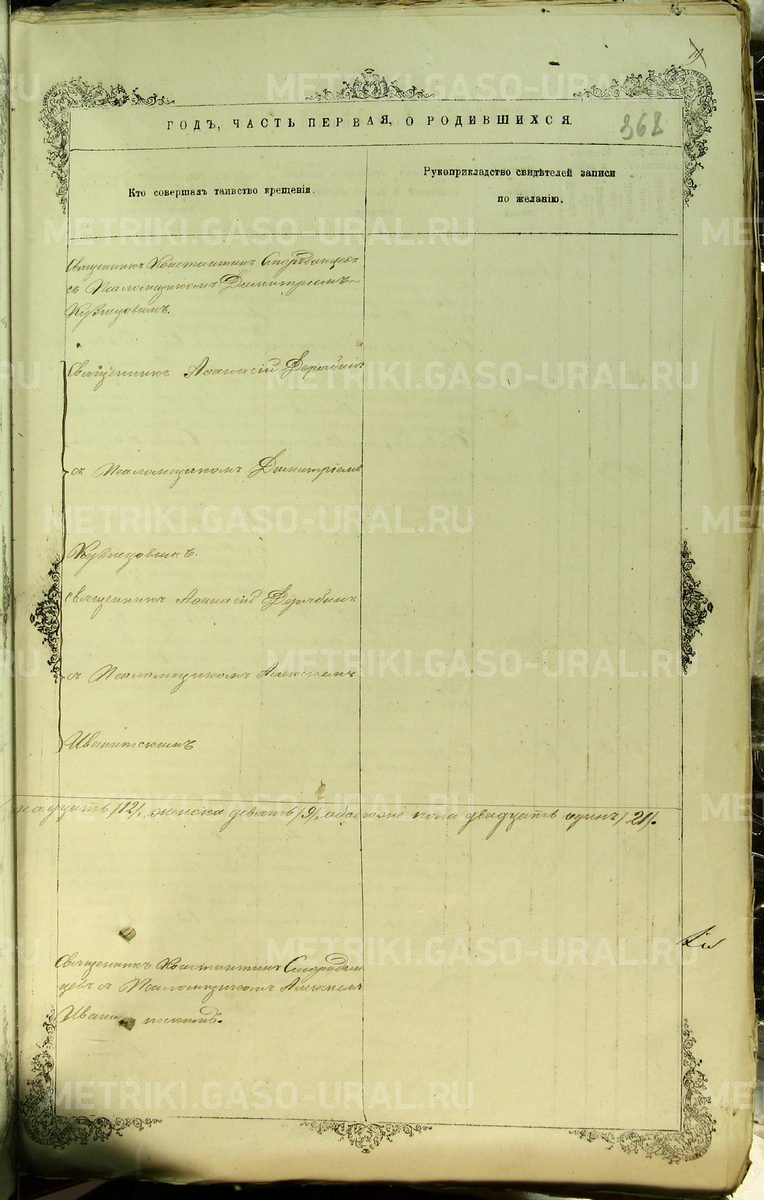 ГОДЪ, ЧАСТЬ ПЕРВАЯ, О РОДИВШИХСЯ.
362
Кто совершалъ таинство крещенія.
Рукоприкладство свидѣтелей записи
по желанію.
Священникъ Константинъ Смородинцевъ
съ Псаломщикомъ Димитріемъ
Кузнецовымъ.
Священникъ Аѳанасій Дерябинъ
съ Псаломщикомъ Димитріемъ
Кузнецовымъ.
Священникъ Аѳанасій Дерябинъ
съ Псаломщикомъ Алексѣемъ
Иваницкимъ
надцать /12/, женска девять /9/, обоего же пола двадцать одинъ /21/.
Священникъ Константинъ Смородин
цевъ съ Псаломщикомъ Алексѣемъ
METRIKI.GASO-URAL.RU